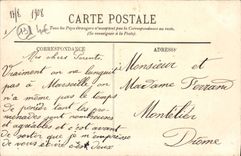 17/8 1908
CARTE POSTALE
Tous les Pays étrangers n'acceptent pas la Correspondance au recto.
(Se renseigner à la Poste)
CORRESPONDANCE
ADRESSE
Mes chers Parents
Vraiment on ne languit
pas à Marseille on
n'a même pas le temps
de prendre tant les pro-
menades sont nombreuses
et agréables et c'est avant
de sortir que je m'empresse
de vous
Monsieur et
Madame Ferrand
Montélier
Drôme